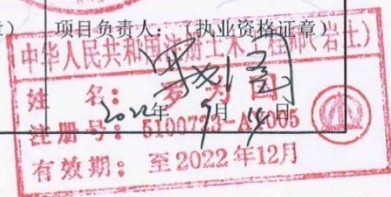 章） 项目负责人：（执业资格证章）
中华人民共和国注册土木工程师(岩土)
姓 名：罗
2022年 9月
注册号：5100723-A
有效期：至2022年12月